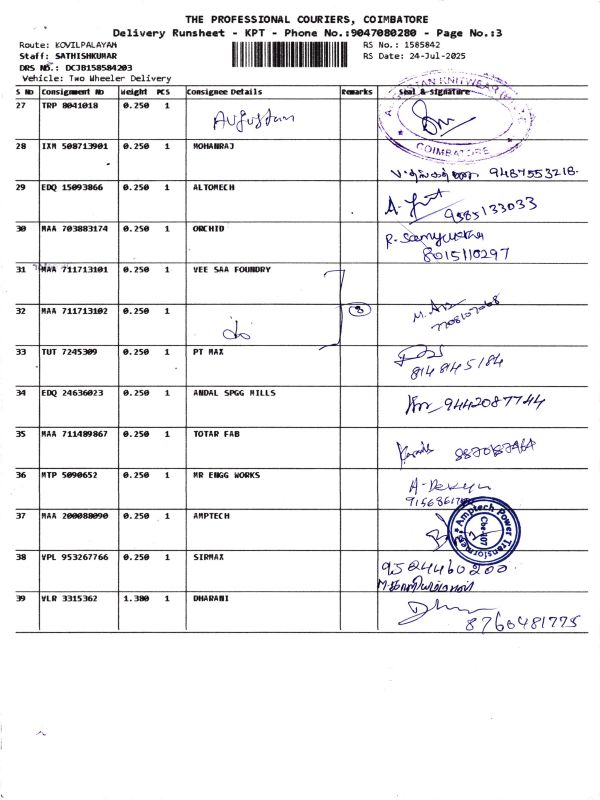 THE PROFESSIONAL COURIERS, COIMBATORE
Delivery Runsheet - KPT - Phone No.:9047080280 - Page No.:3
Route: KOVILPALAYAM
RS No.: 1585842
Staff: SATHISHKUMAR
RS Date: 24-Jul-2025
DRS NO.: DCJB158584203
Vehicle: Two Wheeler Delivery
S No Consignment No Weight PCS Consignee Details Remarks Seal & Signature
27 TRP 8041018 0.250 1
COIMBATORE
28 IXM 508713901 0.250 1 MOHANRAJ
9487553218.
29 EDQ 15093866 0.250 1 ALTOMECH
9585133033
30 MAA 703883174 0.250 1 ORCHID
8015110297
31 MAA 711713101 0.250 1 VEE SAA FOUNDRY
32 MAA 711713102 0.250 1 8
33 TUT 7245309 0.250 1 PT MAX
34 EDQ 24636023 0.250 1 ANDAL SPGG MILLS
9442087744
35 MAA 711489867 0.250 1 TOTAR FAB
36 MTP 5090652 0.250 1 MR ENGG WORKS
37 MAA 200088090 0.250 1 AMPTECH
Amptech Power Transformers
Cbe-107
38 VPL 953267766 0.250 1 SIRMAX
9524460200
39 VLR 3315362 1.380 1 DHARANI
8760481775